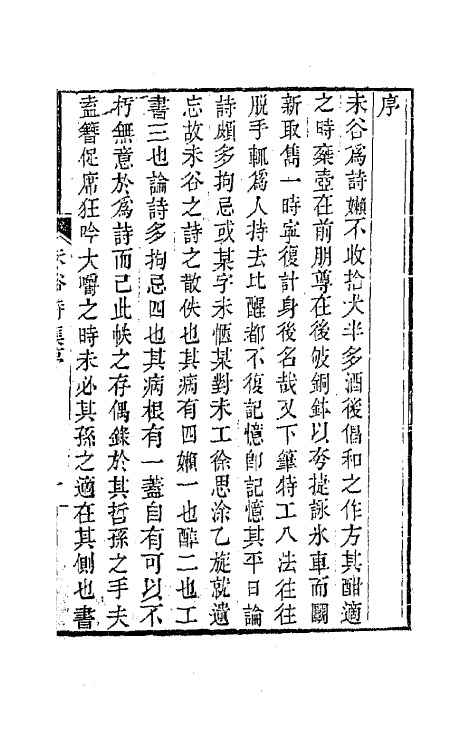 序
未谷爲詩嬾不收拾大半多酒後倡和之作方其酣適
之時雍壺在前朋尊在後破銅鉢以夸捷詠氷車而鬭
新取雋一時寧復計身後名哉又下雜特工八法往往
脫手輒爲人持去比醒都不復記憶卽記憶其平日論
詩頗多拘忌或某字未愜某對未工徐思涂乙旋就遺
忘故未谷之詩之散佚也其病有四嬾一也醉二也工
書三也論詩多拘忌四也其病根有一蓋自有可以不
朽無意於爲詩而已此帙之存偶錄於其哲孫之手夫
盍簪促席狂吟大嚼之時未必其孫之適在其側也書
未谷詩集序
一